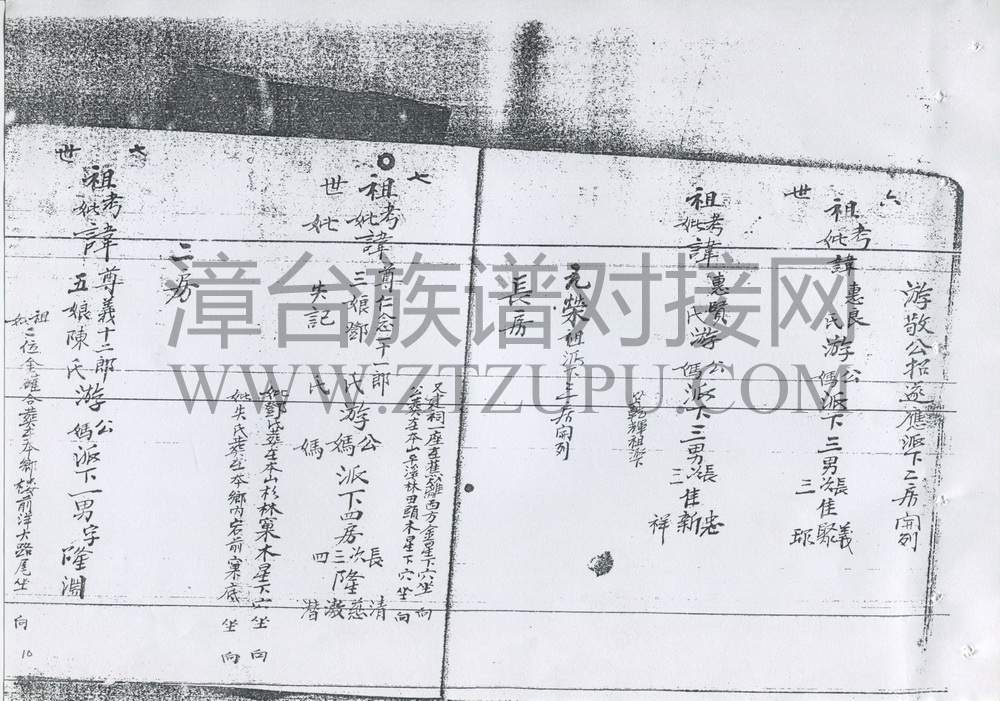 游敬公招遂應派下二房開列
六世
祖考妣諱惠良氏游公媽派下三男長佳義次聚三
祖考妣諱惠賢氏游公媽派下三男長佳忠次新三祥
元榮祖派下二房開列
長房
七世
祖考妣諱尊仁念一郎三娘鄭氏游公媽派下四房長隆清次慈三潑四潛
妣失記氏媽
又建祠一座在蕉籬西方金星下穴坐向
妣鄭氏葬在本山杉林窠木星下穴坐向
妣失氏葬在本鄉內岩前窠底坐向
二房
六世
祖考妣諱尊義十二郎五娘陳氏游公媽派下一男字隆淵
祖妣二位金確合葬在本鄉楼前洋大路尾坐向
10
漳台族谱对接网
WWW.ZTZUPU.COM